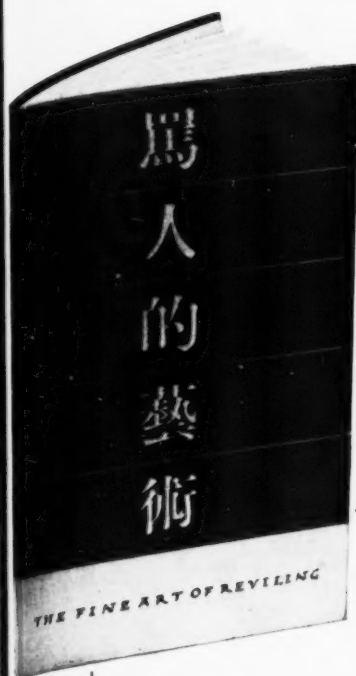 罵人的藝術
THE FINE ART OF REVILING